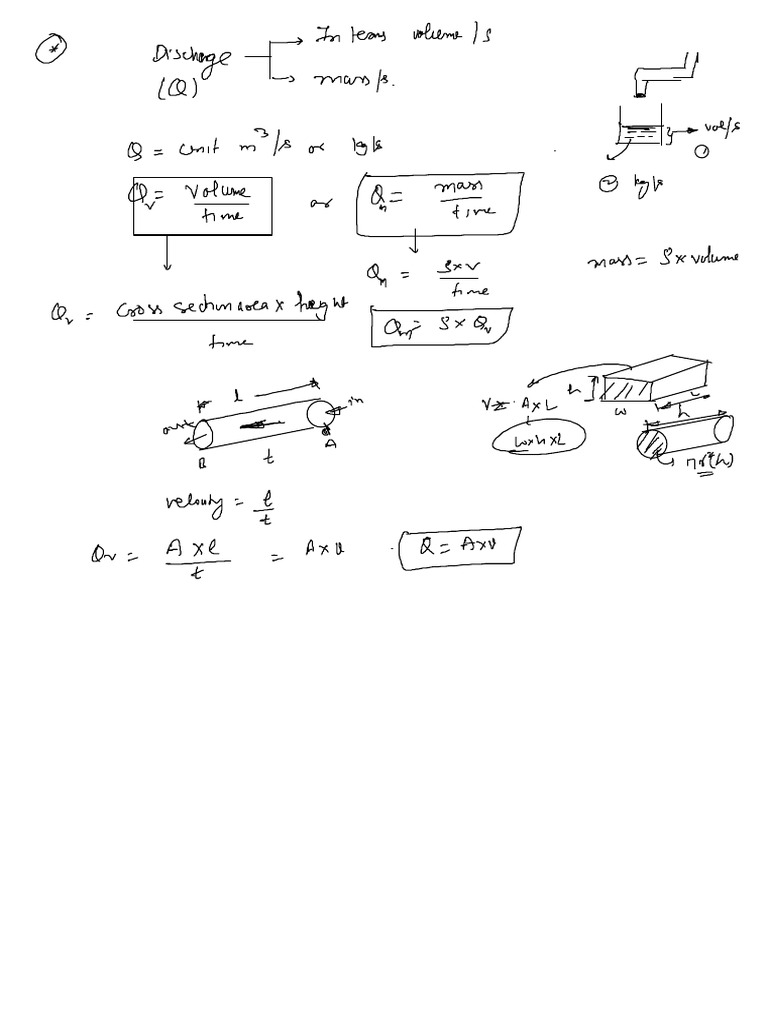 *
Discharge
(Q)
In terms volume/s
mass/s.
Q = unit m³/s or kg/s
Qv = volume / time or Qm = mass / time
vol/s
①
② kg/s
Qm = ρ×v / time
mass = ρ × volume
Qv = cross section area × height / time
Qm = ρ × Qv
l
in
out
A
B
t
h
w
L
V = A×L
w×h×L
h
πr²(h)
velocity = l / t
Qv = A × l / t = A×v
Q = A×v